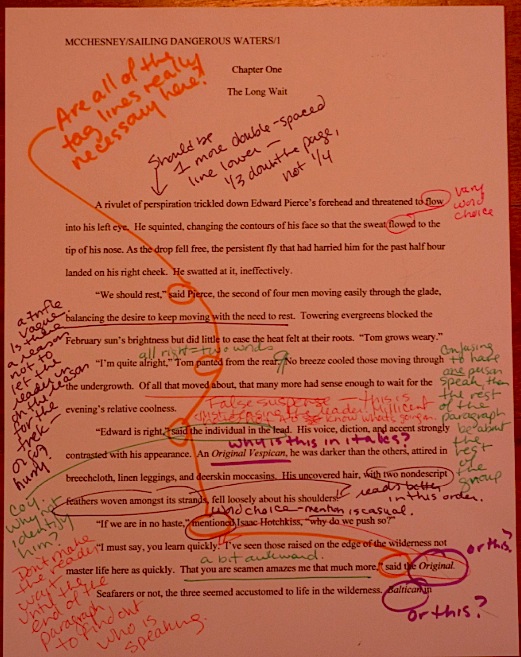 MCCHESNEY/SAILING DANGEROUS WATERS/1
Chapter One
The Long Wait
Are all of the
tag lines really
necessary here?
Should be
1 more double-spaced
line lower —
1/3 down the page,
not 1/4
A rivulet of perspiration trickled down Edward Pierce's forehead and threatened to flow
vary
word
choice
into his left eye. He squinted, changing the contours of his face so that the sweat flowed to the
tip of his nose. As the drop fell free, the persistent fly that had harried him for the past half hour
landed on his right cheek. He swatted at it, ineffectively.
"We should rest," said Pierce, the second of four men moving easily through the glade,
balancing the desire to keep moving with the need to rest. Towering evergreens blocked the
a trifle
vague.
Is there
a reason
not to
let the
reader in
on the reason
for the
trek
or for
hurry
February sun's brightness but did little to ease the heat felt at their roots. "Tom grows weary."
all right = two words
"I'm quite alright," Tom panted from the rear. No breeze cooled those moving through
¶
the undergrowth. Of all that moved about, that many more had sense enough to wait for the
Confusing
to have
one person
speak, then
the rest
of the
paragraph
be about
the
rest of
the
group
evening's relative coolness.
False suspense — this is
"Edward is right," said the individual in the lead. His voice, diction, and accent strongly
why is this in italics?
contrasted with his appearance. An Original Vespican, he was darker than the others, attired in
breechcloth, linen leggings, and deerskin moccasins. His uncovered hair, with two nondescript
feathers woven amongst its strands, fell loosely about his shoulders.
reads better
in this order.
word choice – mention is casual.
Coy.
Why not
identify
him?
"If we are in no haste," mentioned Isaac Hotchkiss, "why do we push so?"
"I must say, you learn quickly. I've seen those raised on the edge of the wilderness not
a bit awkward.
master life here as quickly. That you are seamen amazes me that much more," said the Original.
or this.
Seafarers or not, the three seemed accustomed to life in the wilderness. Baltican in
or this?
Don't make
the reader
wait the
until the
end of the
paragraph
to find out
who is
speaking.